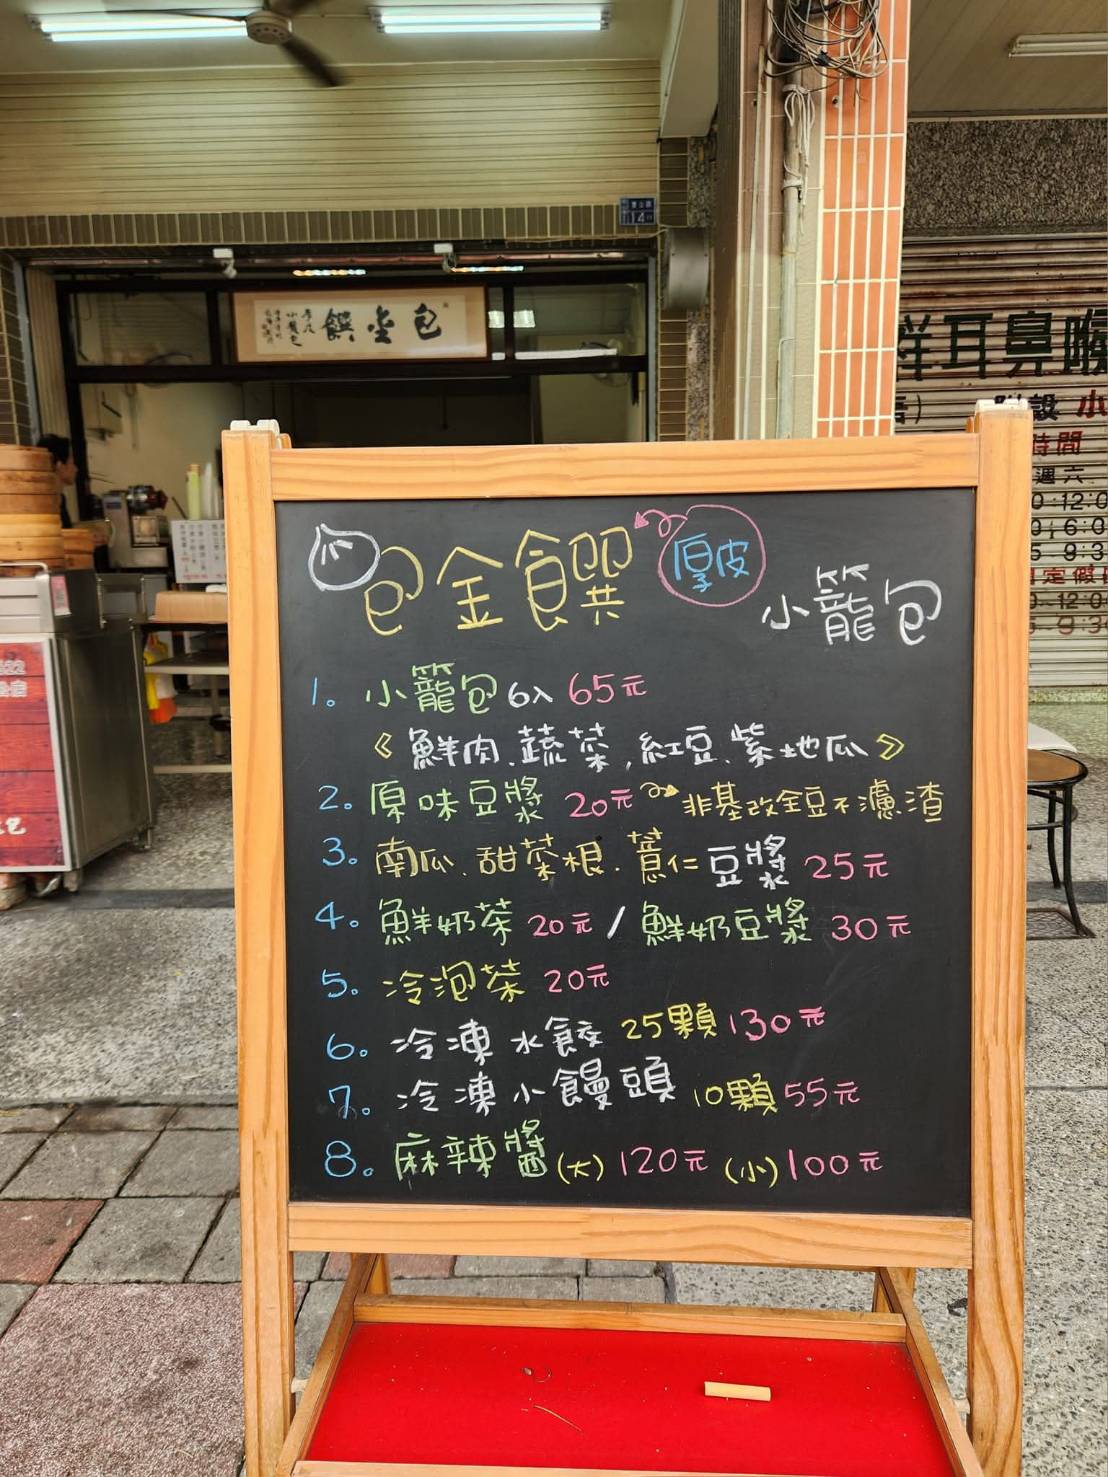 14
包金饌
小籠包
祥耳鼻喉
附設 小
時間
週六
包金饌 厚皮
小籠包
1. 小籠包 6入 65元
《鮮肉.蔬菜,紅豆.紫地瓜》
2. 原味豆漿 20元 非基改全豆不濾渣
3. 南瓜.甜菜根.薏仁豆漿 25元
4. 鮮奶茶 20元 / 鮮奶豆漿 30元
5. 冷泡茶 20元
6. 冷凍水餃 25顆 130元
7. 冷凍小饅頭 10顆 55元
8. 麻辣醬 (大) 120元 (小) 100元